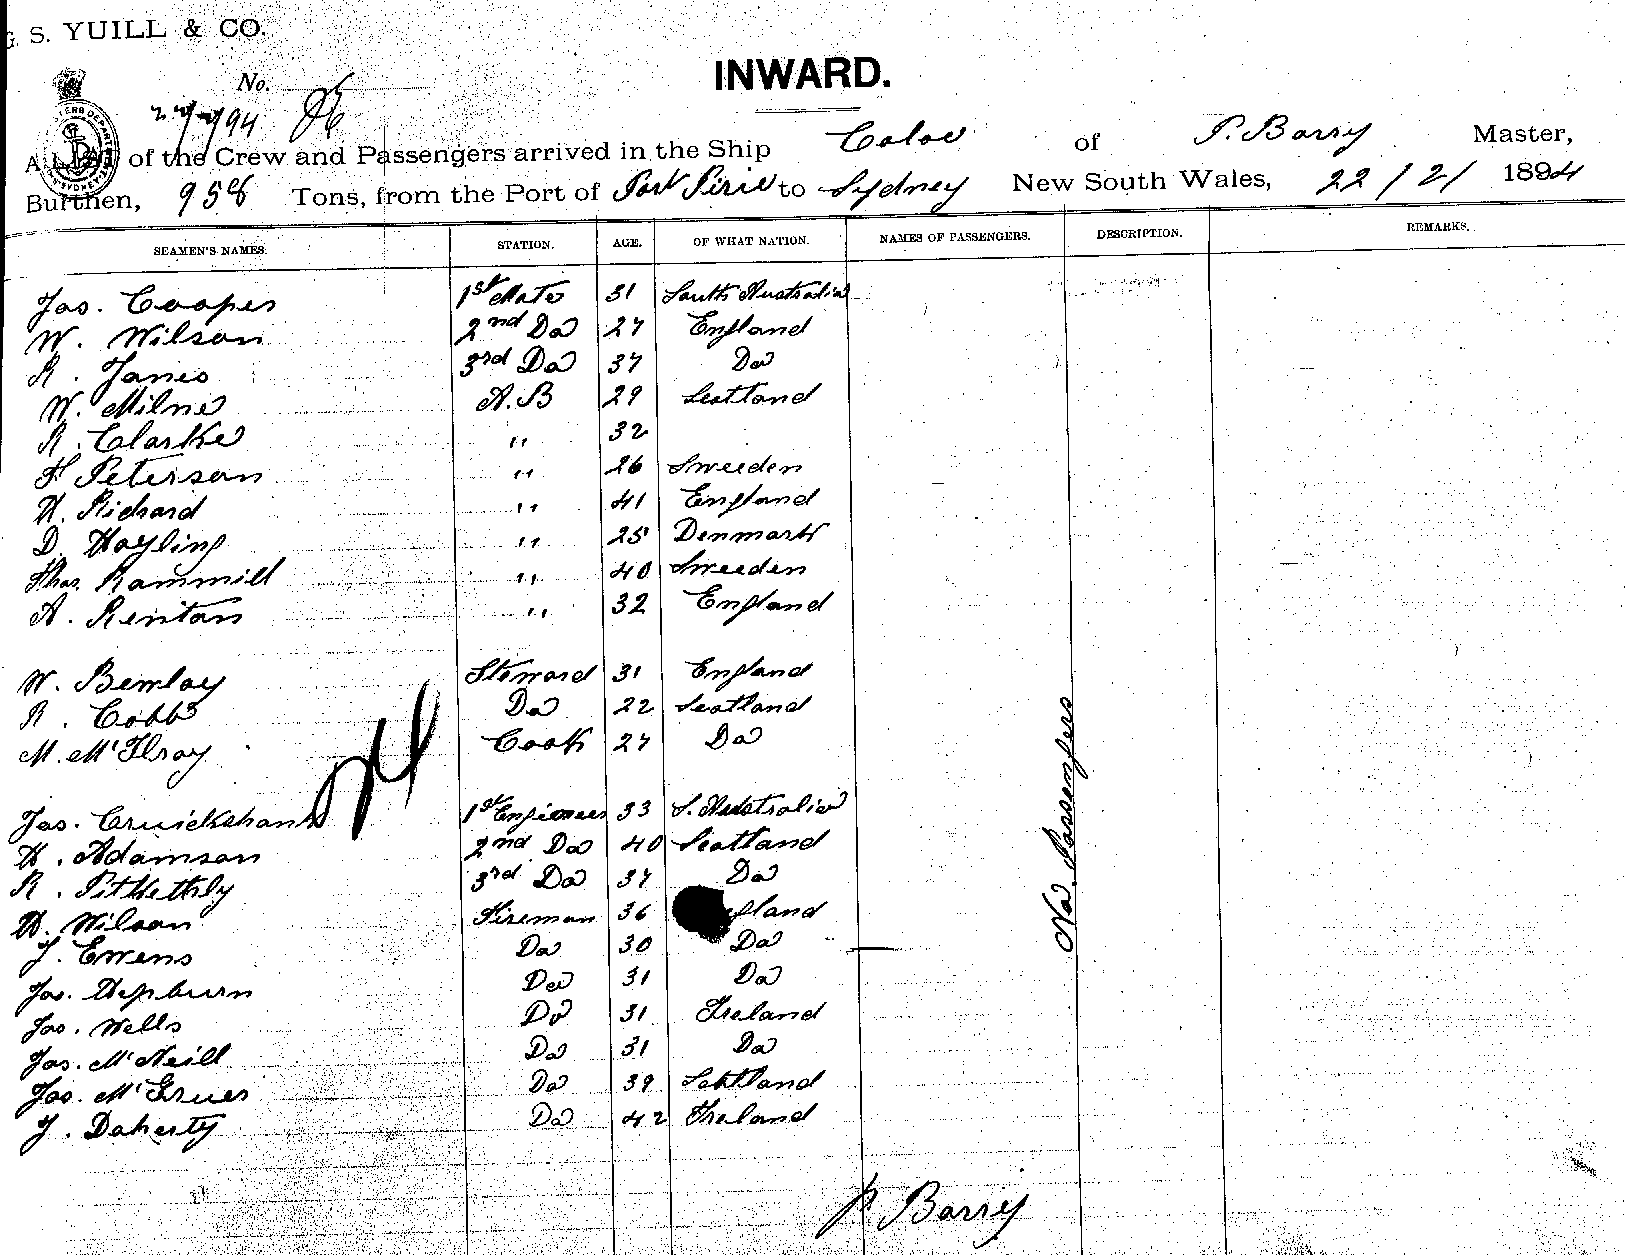 G. S. YUILL & CO.
INWARD.
No. 86
A List of the Crew and Passengers arrived in the Ship Coloc of P. Barry Master,
Burthen, 958 Tons, from the Port of Port Pirie to Sydney New South Wales, 22/2/1894
SEAMEN'S NAMES. STATION. AGE. OF WHAT NATION. NAMES OF PASSENGERS. DESCRIPTION. REMARKS.
Jas. Cooper 1st Mate 31 South Australia
W. Wilson 2nd Do 27 England
R. Jones 3rd Do 37 Do
W. Milne A.B 29 Scotland
R. Clarke " 32
F Peterson " 26 Sweeden
H. Richard " 41 England
D. Hayling " 25 Denmark
Thos. Rammill " 40 Sweeden
A. Renton " 32 England
W. Bemlay Steward 31 England
R. Cobb Do 22 Scotland
M. McIlroy Cook 27 Do
Jas. Cruickshank 1st Engineer 33 S. Australia
H. Adamson 2nd Do 40 Scotland
R. Pitkethly 3rd Do 37 Do
H. Wilson Fireman 36 England
J. Ewens Do 30 Do
Jas. Hepburn Do 31 Do
Jas. Wells Do 31 Ireland
Jas. McNeill Do 31 Do
Jas. McGrues Do 39 Scotland
J. Doherty Do 42 Ireland
No Passengers
P Barry